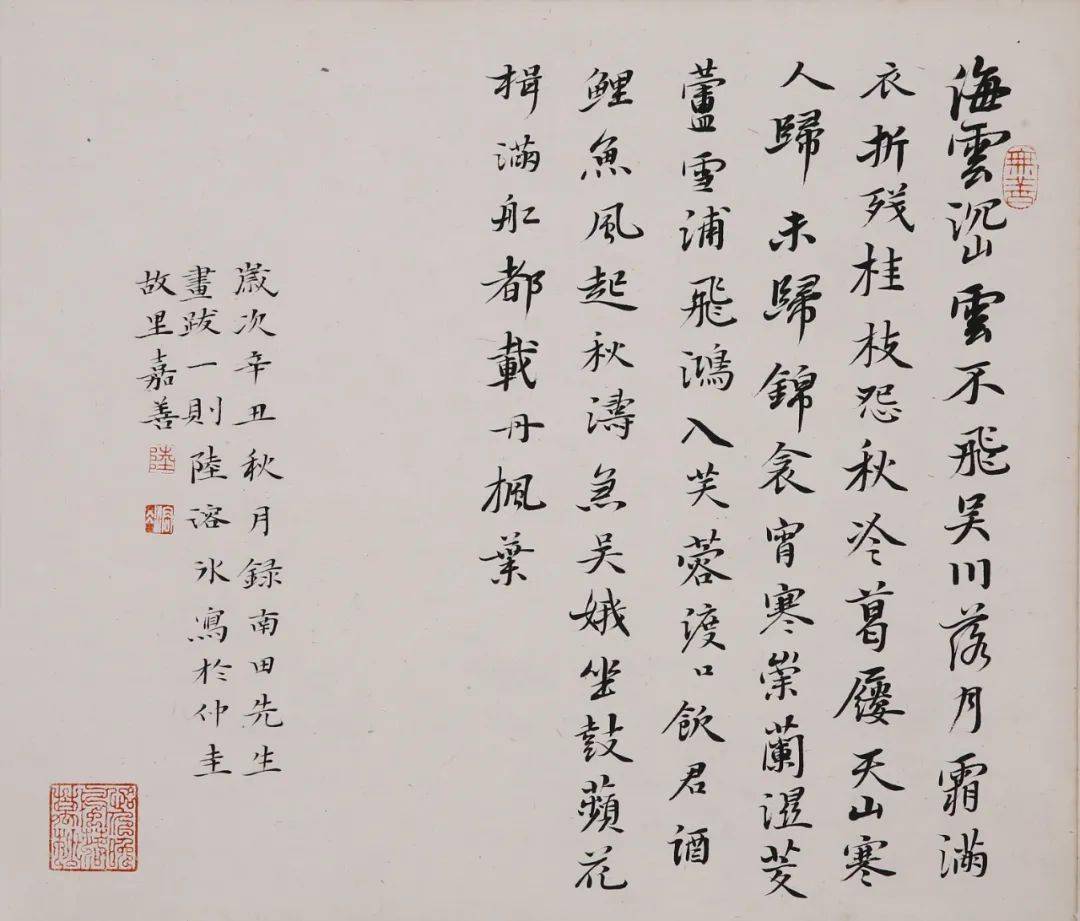 海雲沉山雲不飛吴川落月霜滿
衣折残桂枝怨秋冷葛屨天山寒
人歸未歸錦衾宵寒崇蘭濕芰
蘆雪浦飛鴻入芙蓉渡口飲君酒
鲤魚風起秋濤急吴娥坐鼓蘋花
楫滿舡都載丹楓葉
歲次辛丑秋月録南田先生
畫跋一則陸溶冰寫於仲圭
故里嘉善
無善
陸